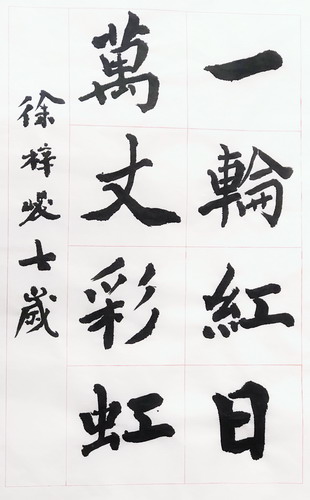 一輪紅日
萬丈彩虹
徐梓峻七歲